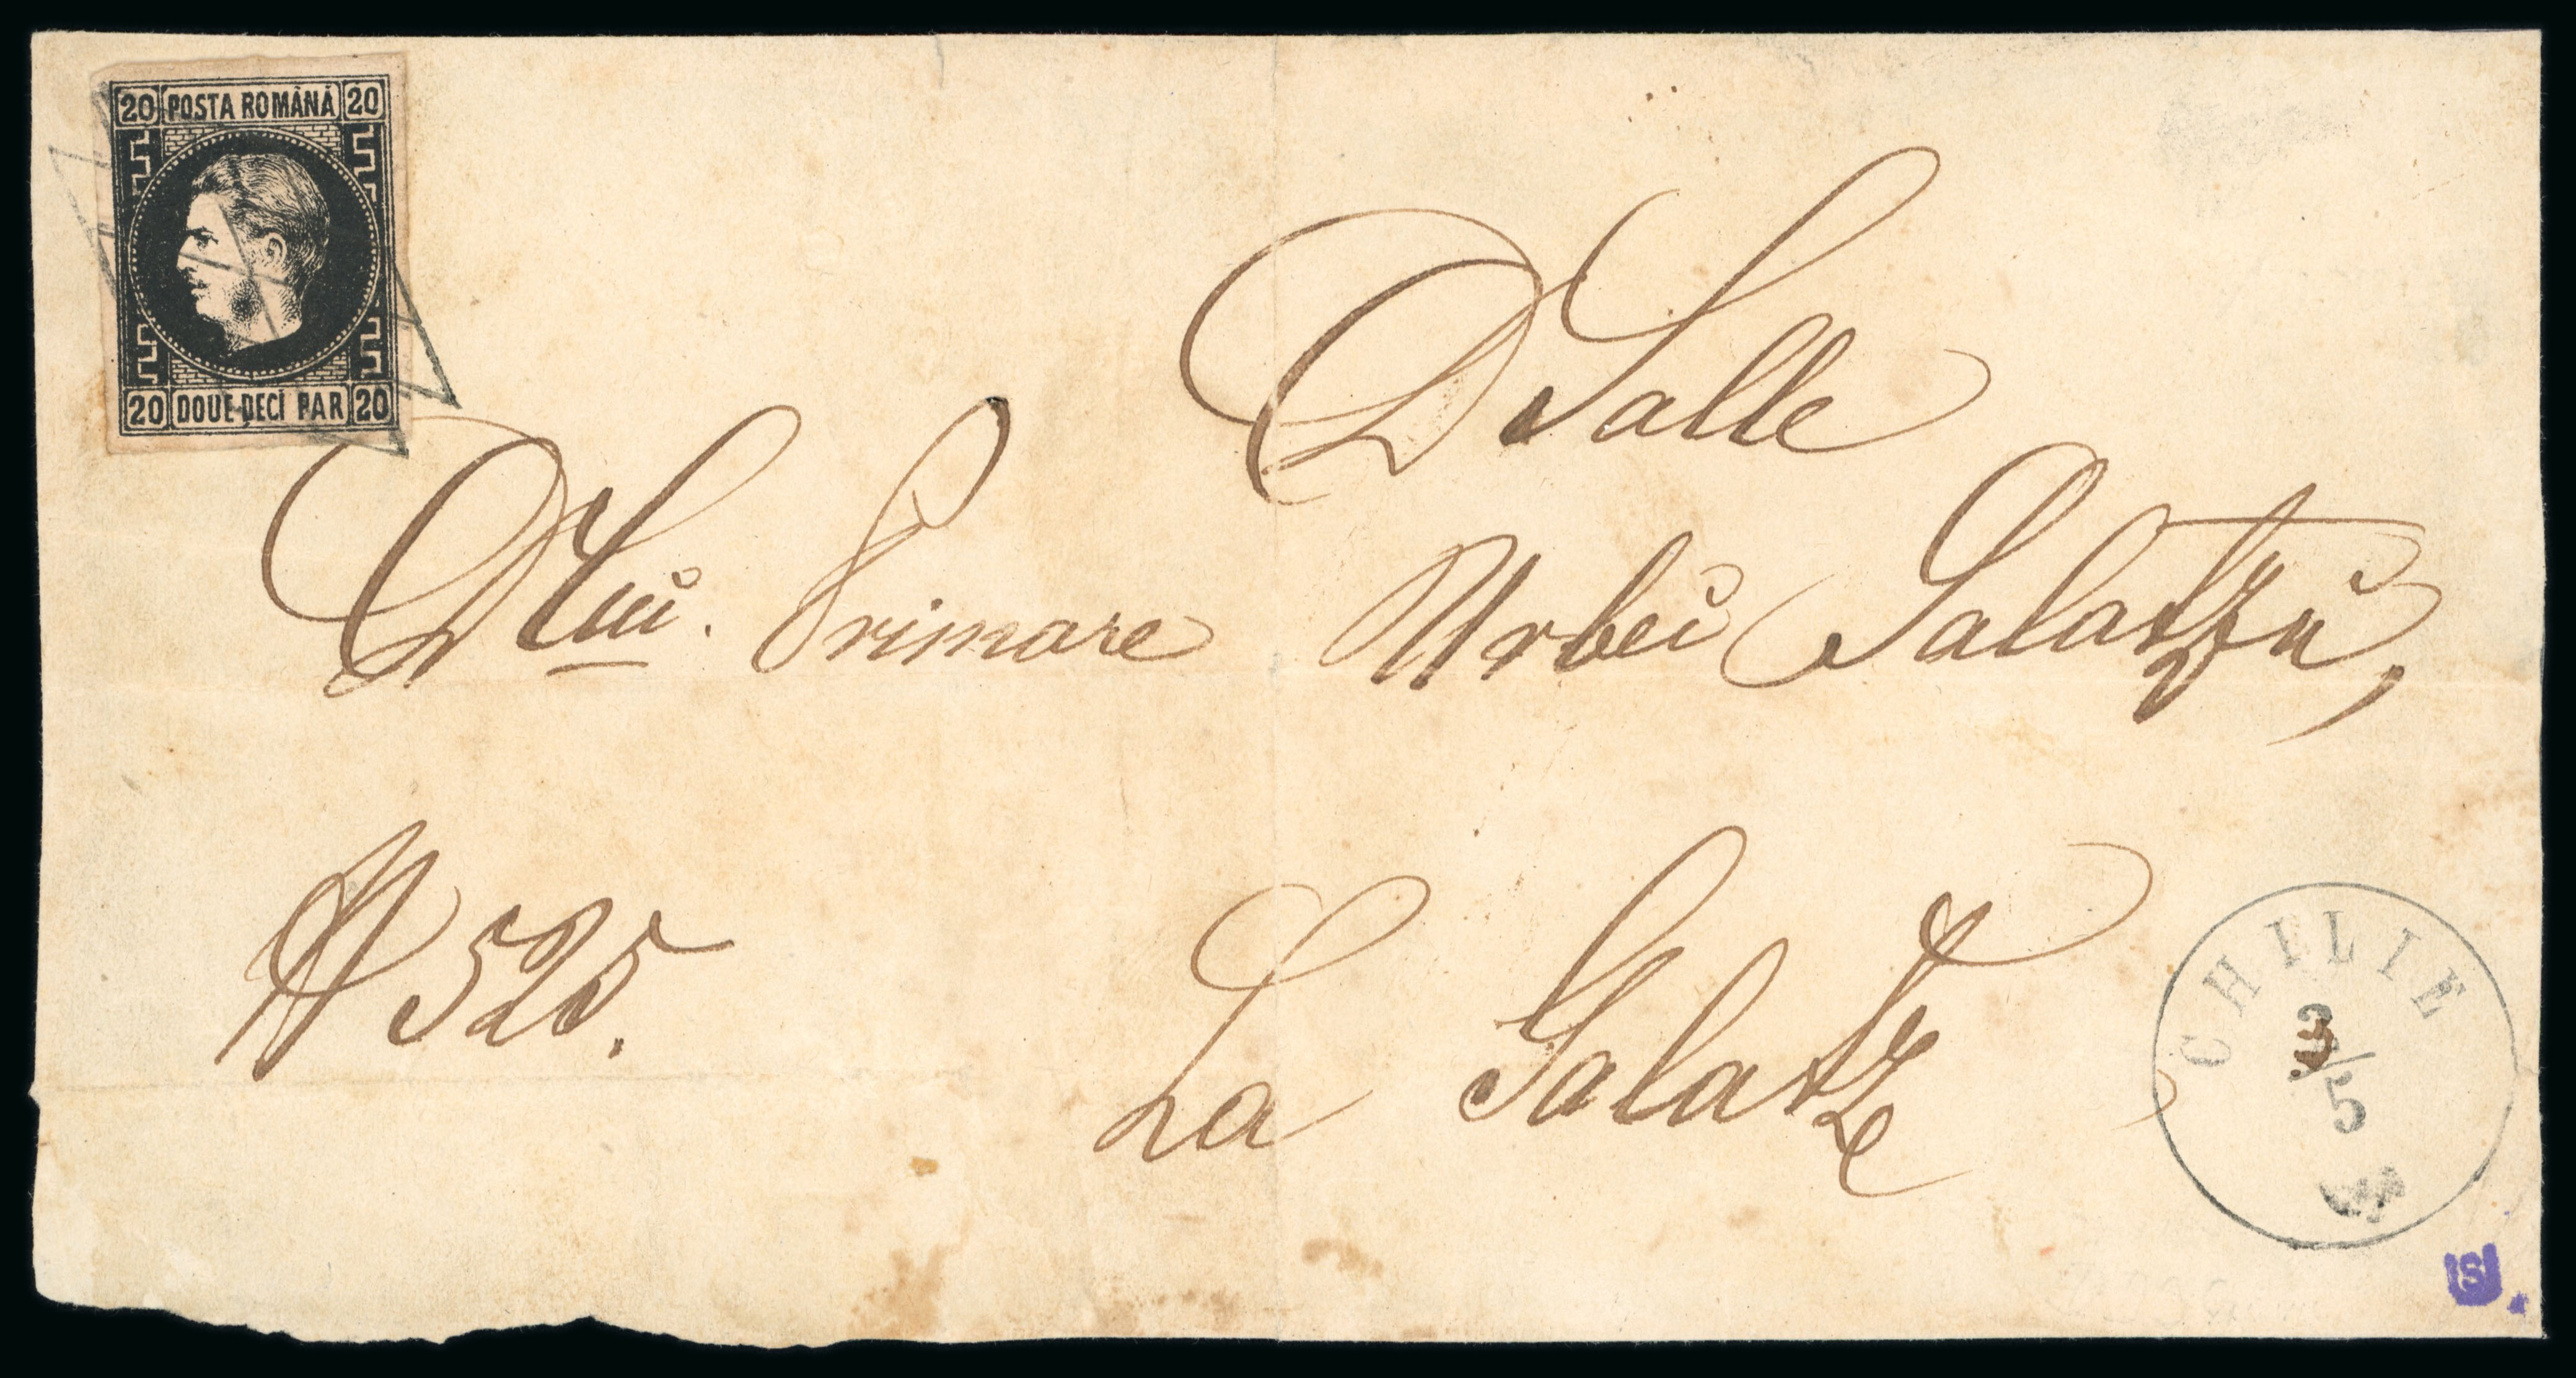 20 POSTA ROMÂNĂ 20
20 DOUE-DECI PAR 20
D Salle
D lui. Primare Urbei Galatzŭ,
N 525.
La Galatz
CHILIE
3/5
S